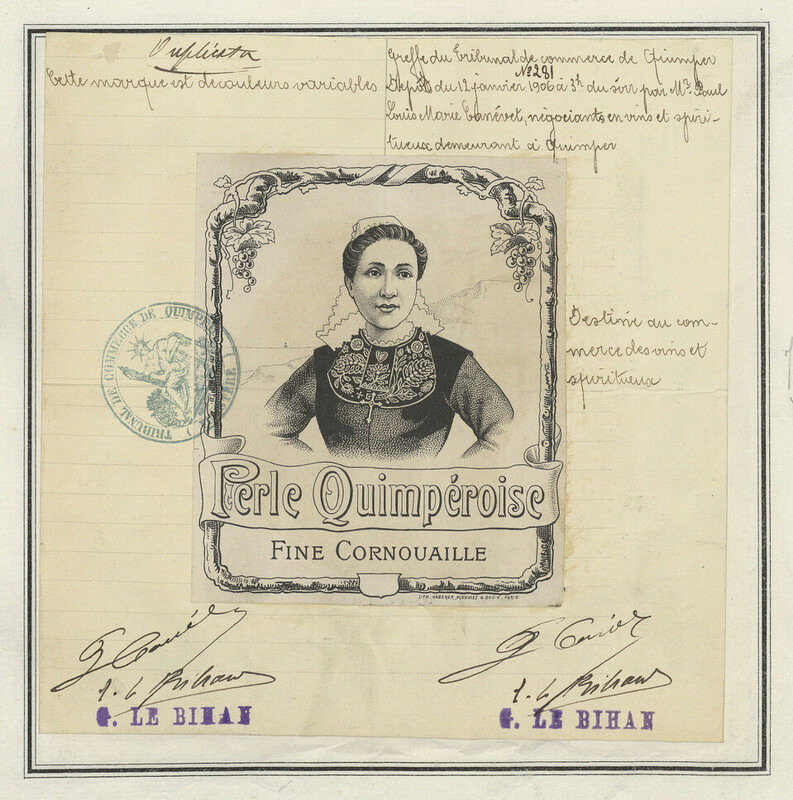 Duplicata
Cette marque est de couleurs variables
Greffe du Tribunal de commerce de Quimper
Nº 281
Dépôt du 12 janvier 1906 à 3h du soir par Mr. Paul
Louis Marie Canévet, négociants en vins et spiri-
tueux demeurant à Quimper
TRIBUNAL DE COMMERCE DE QUIMPER
Destinée au com-
merce des vins et
spiritueux
Perle Quimpéroise
FINE CORNOUAILLE
LITH. HABERER, PARIS.
G. Le Bihan
G. Le Bihan
G. LE BIHAN
G. LE BIHAN